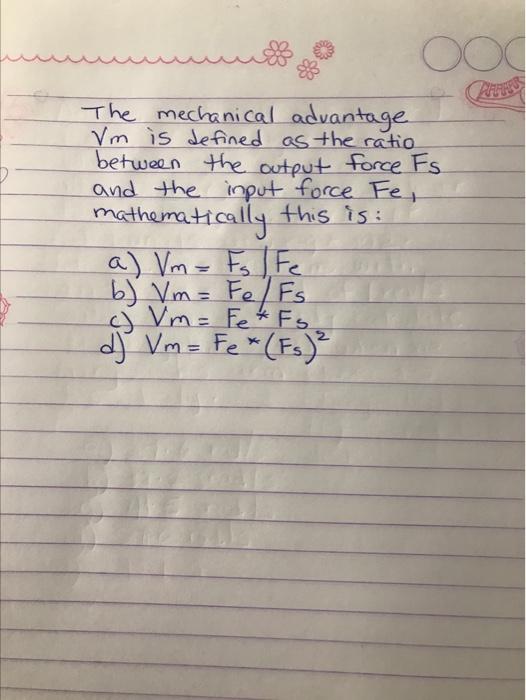 The mechanical advantage
Vm is defined as the ratio
between the output force Fs
and the input force Fe,
mathematically this is:
a) Vm = Fs / Fe
b) Vm = Fe / Fs
c) Vm = Fe * Fs
d) Vm = Fe * (Fs)²